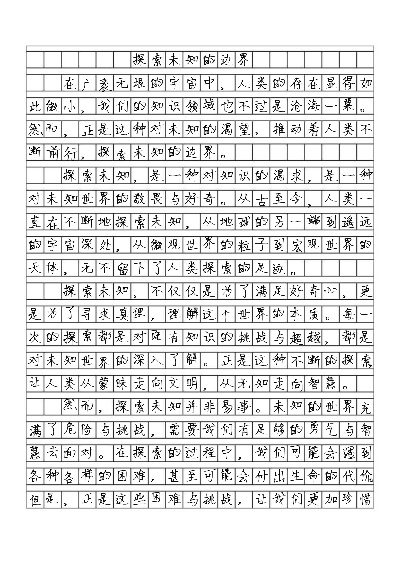 探索未知的边界
在广袤无垠的宇宙中，人类的存在显得如
此微小，我们的知识领域也不过是沧海一粟。
然而，正是这种对未知的渴望，推动着人类不
断前行，探索未知的边界。
探索未知，是一种对知识的渴求，是一种
对未知世界的敬畏与好奇。从古至今，人类一
直在不断地探索未知，从地球的另一端到遥远
的宇宙深处，从微观世界的粒子到宏观世界的
天体，无不留下了人类探索的足迹。
探索未知，不仅仅是为了满足好奇心，更
是为了寻求真理，理解这个世界的本质。每一
次的探索都是对既有知识的挑战与超越，都是
对未知世界的深入了解。正是这种不断的探索
让人类从蒙昧走向文明，从无知走向智慧。
然而，探索未知并非易事。未知的世界充
满了危险与挑战，需要我们有足够的勇气与智
慧去面对。在探索的过程中，我们可能会遇到
各种各样的困难，甚至可能会付出生命的代价
但是，正是这些困难与挑战，让我们更加珍惜